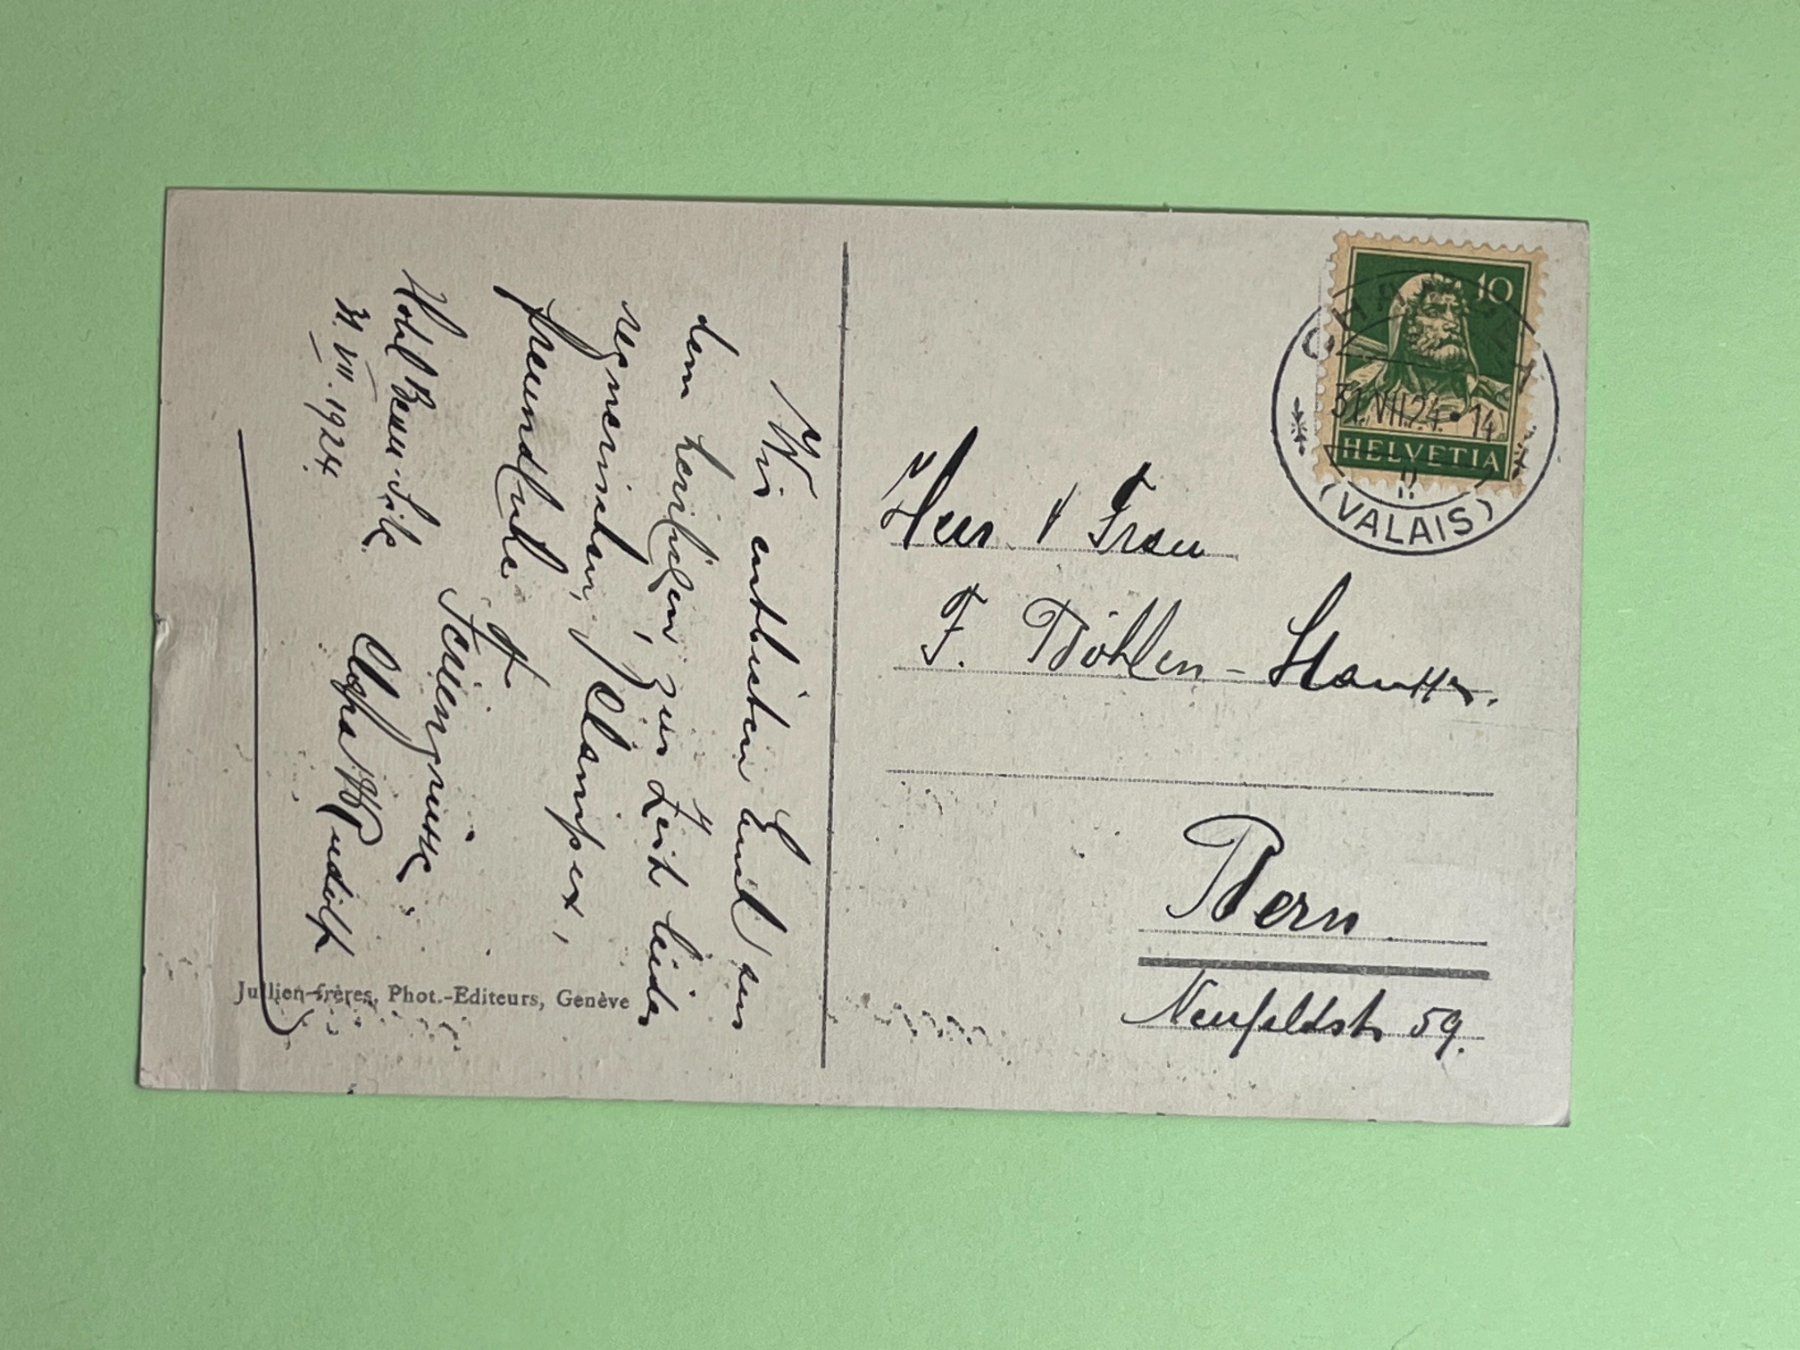 Wir entbieten Euch von
dem herrlichen, zur Zeit leider
regnerischen, Champex,
freundliche
Feriengrüsse
Hotel Beau-Site
Clara Rudolf
31. VII. 1924.
Herr & Frau
F. Böhlen-Stauffer.
Bern
Neufeldstr 59.
10
HELVETIA
31.VII.24.14
(VALAIS)
Jullien frères, Phot.-Editeurs, Genève